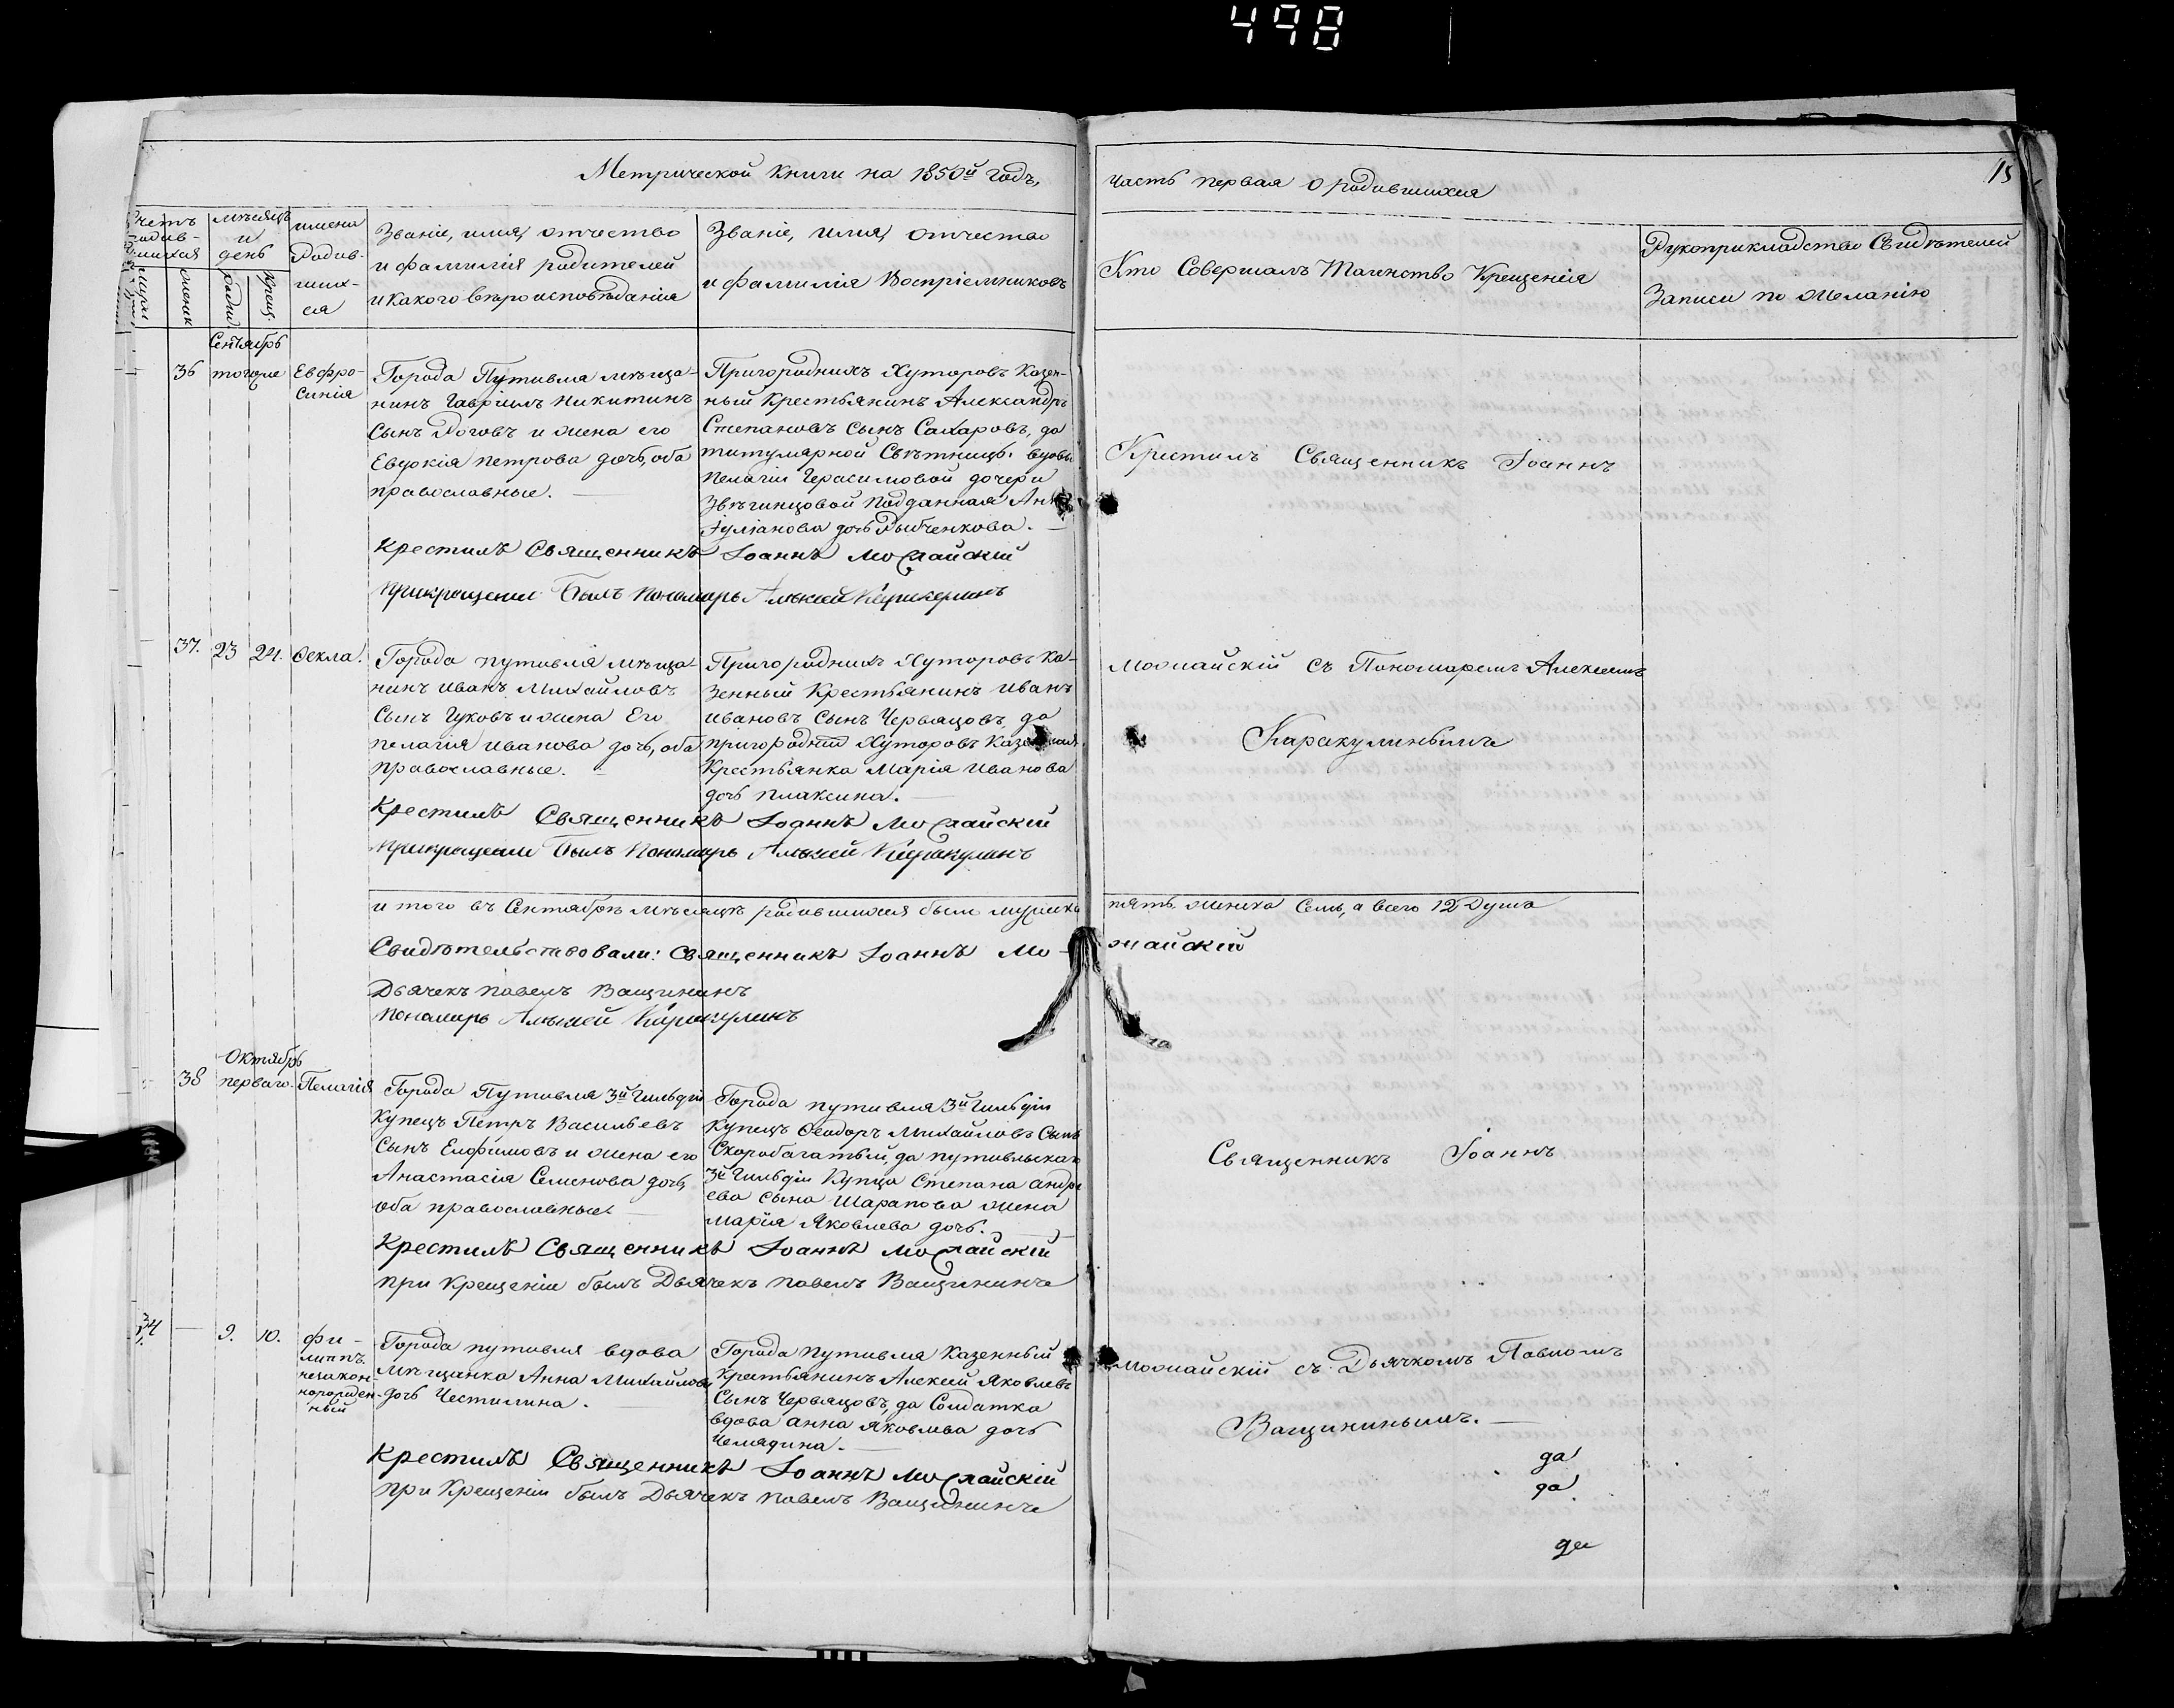 498
Метрической Книги на 1850й Годъ,
часть первая о родившихся
15
Счетъ родив-шихся
мѣсяцъ
и
день
имена
Родив-
ших-
ся
женск
рожд
Крещ.
Званіе, имя, отчество
и фамилія родителей
и какого вѣроисповѣданія
Званіе, имя, отчество
и фамилія Воспріемниковъ
Кто Совершалъ Таинство Крещенія
Рукоприкладство Свидѣтелей
Записи по желанію
Сентябрь
36 тогоже
Евфро-
синія
Города Путивля мѣща-
нинъ Гавріилъ Никитинъ
Сынъ Роговъ и жена его
Евдокія петрова дочь, оба
православные.
Пригороднихъ Хуторовъ Казен-
ный Крестьянинъ Александръ
Степановъ Сынъ Сахаровъ, да
титулярной Свѣтницы вдовы
Пелагіи Герасимовой дочери
Звѣгинцовой Подданная Анна
Іуліанова дочь Рыбченкова.
Крестилъ Священникъ Іоаннъ Можайскій
При крещеніи былъ Пономарь Алексей Каракулинъ
Крестилъ Священникъ Іоаннъ
37. 23 24. Ѳекла.
Города путивля мѣща-
нинъ Иванъ Михайловъ
Сынъ Гуковъ и жена Его
пелагія иванова дочь, оба
православные.
Пригороднихъ Хуторовъ Ка-
зенный Крестьянинъ иванъ
ивановъ Сынъ Червяцовъ, да
пригородній Хуторовъ Казенная
Крестьянка Марія иванова
дочь плаксина.
Крестилъ Священникъ Іоаннъ Можайскій
При крещеніи былъ Пономарь Алексей Каракулинъ
Можайскій съ Пономаремъ Алексеемъ
Каракулинымъ
и того въ Сентябрѣ мѣсяцѣ родившихся было мужска пять женска Семь, а всего 12 Душъ
Свидѣтельствовали: Священникъ Іоаннъ Можайскій
Дьячекъ павелъ Ващининъ
пономарь Алексей Каракулинъ
Октябрь
38 перваго. Пелагія
Города Путивля 3й Гильдіи
Купецъ Петръ Васильевъ
Сынъ Елфимовъ и жена его
Анастасія Семенова дочь,
оба православные
Города путивля 3й Гильдіи
Купецъ Ѳеодоръ Михайловъ Сынъ
Скоробагатый, да путивльскаго
3й Гильдіи Купца Степана андре
ева сына Шарапова жена
марія Яковлева дочь.
Крестилъ Священникъ Іоаннъ Можайскій
при Крещеніи былъ Дьячекъ павелъ Ващининъ
Священникъ Іоаннъ
34 9. 10.
Фи-
липпъ.
незакон-
норожден-
ный
Города путивля вдова
мѣщанка Анна Михайлова
дочь Честилина.
Города Путивля Казенный
Крестьянинъ Алексей Яковлевъ
Сынъ Червяцовъ, да Солдатка
вдова анна яковлева дочь
Челядина.
Крестилъ Священникъ Іоаннъ Можайскій
при Крещеніи былъ Дьячекъ павелъ Ващининъ
Можайскій съ Дьячкомъ Павломъ
Ващининымъ.
да
да
да